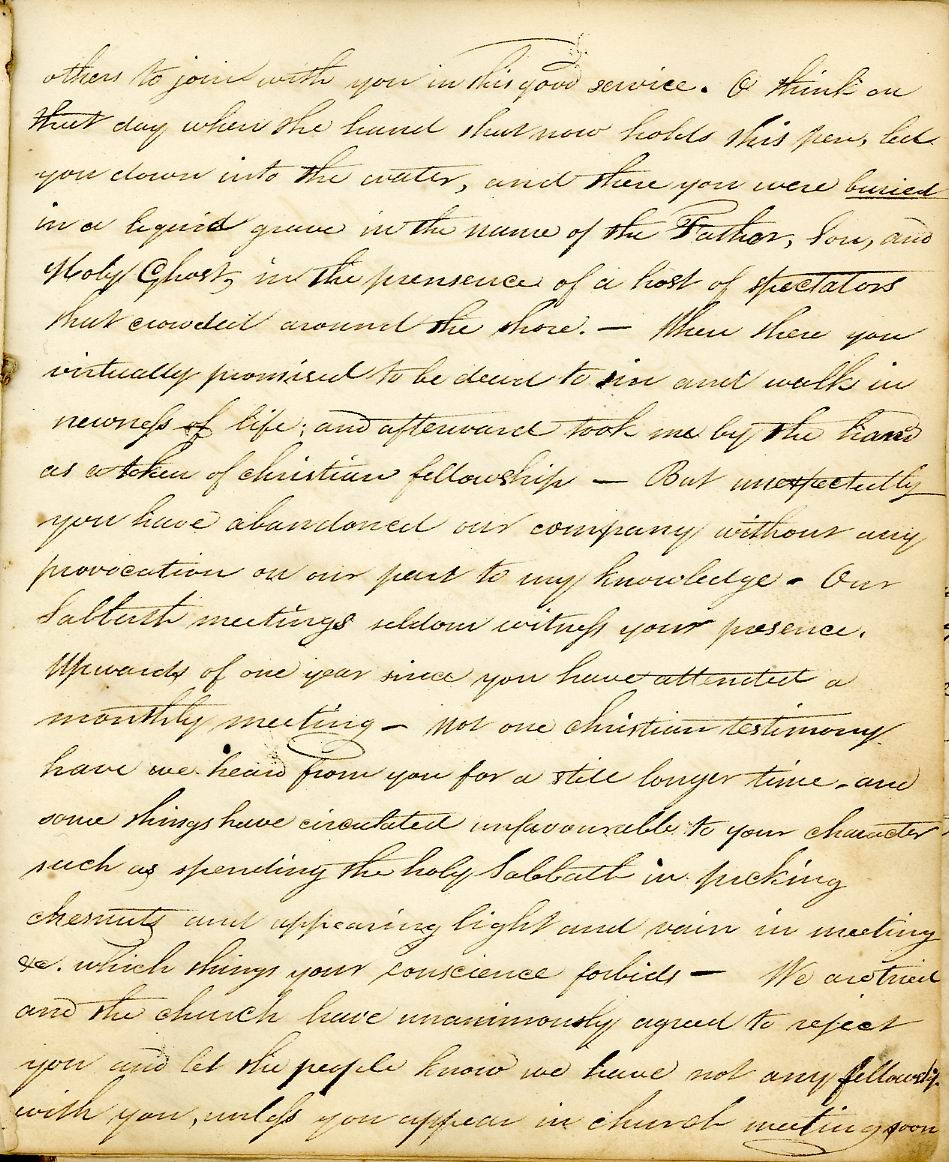 others to join with you in this good service. O think on
that day when the hand that now holds this pen, led
you down into the water, and there you were buried
in a liquid grave in the name of the Father, Son, and
Holy Ghost, in the prensence of a host of spectators
that crowded around the shore. — Then there you
virtually promised to be dead to sin and walk in
newness of life; and afterward took me by the hand
as a token of christian fellowship — But unexpectedly
you have abandoned our company without any
provocation on our part to my knowledge - Our
Sabbath meetings seldom witness your presence.
Upwards of one year since you have attended a
monthly meeting — Not one christian testimony
have we heard from you for a still longer time - and
some things have circulated unfavourable to your character
such as spending the holy Sabbath in picking
chesnuts and appearing light and vain in meeting
&c. which things your conscience forbids — We are tried
and the church have unanimously agreed to reject
you and let the people know we have not any fellowship
with you, unless you appear in church meeting soon